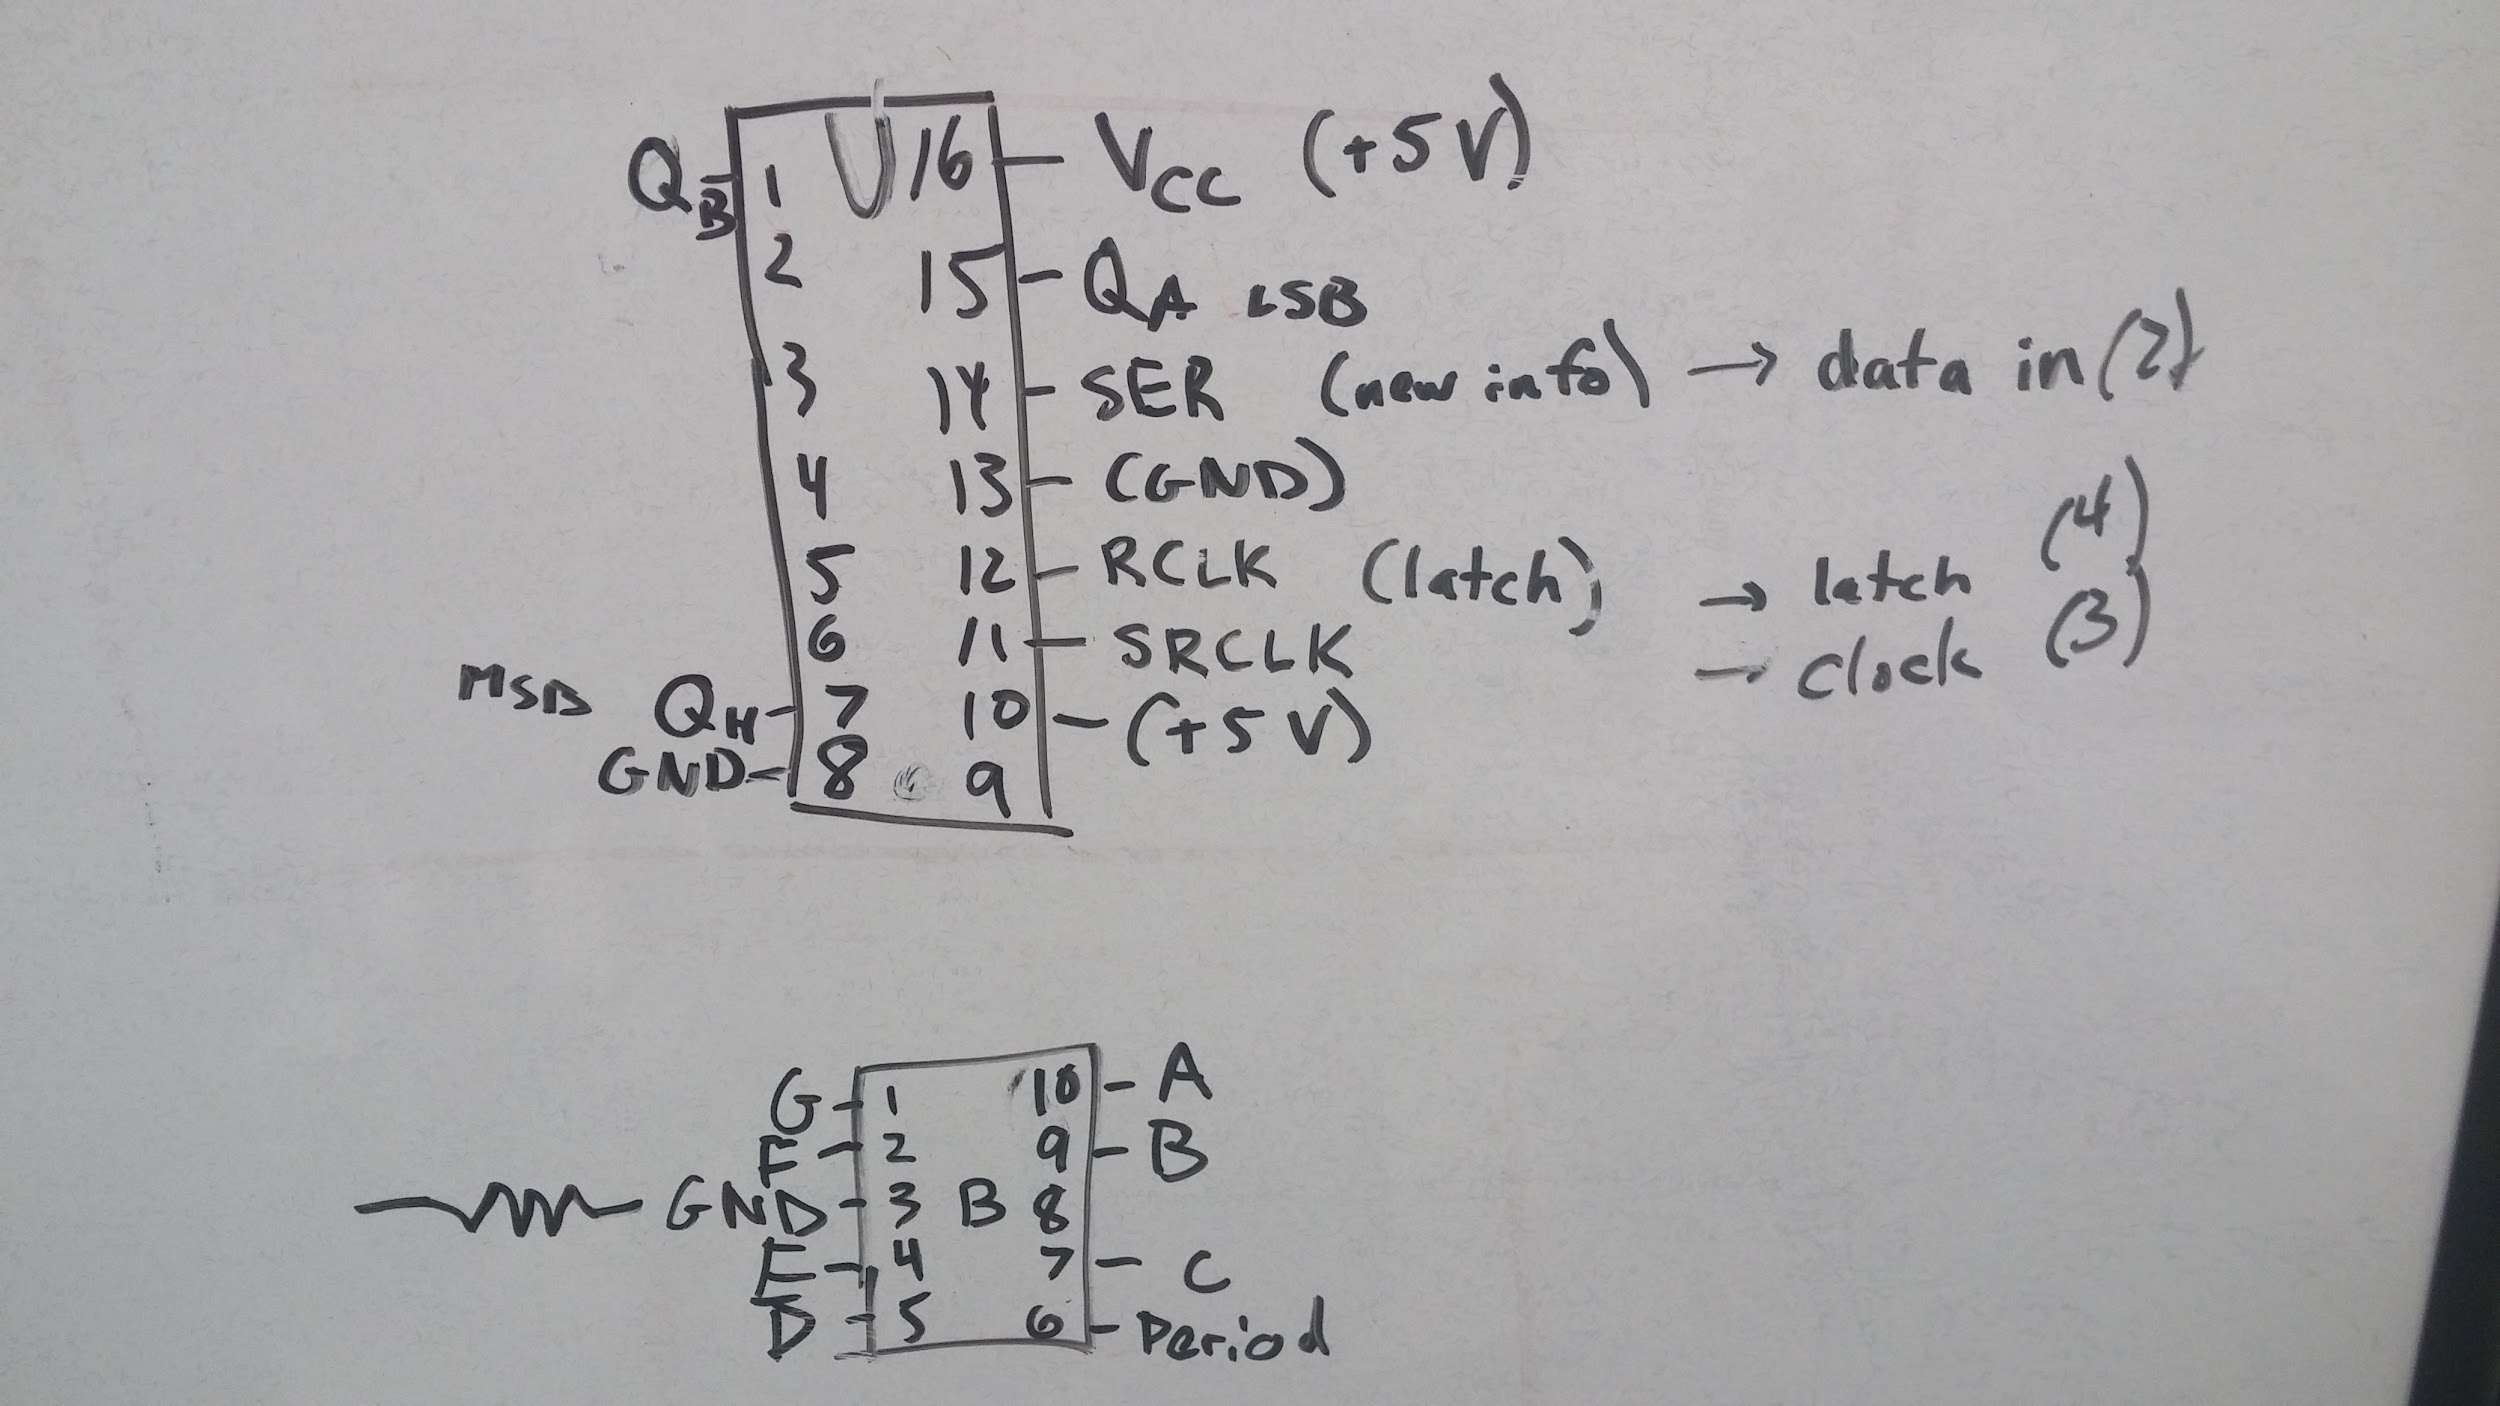 QB 1 16 VCC (+5V)
2 15 QA LSB
3 14 SER (new info) → data in (2)
4 13 (GND)
5 12 RCLK (latch) → latch (4)
6 11 SRCLK → clock (3)
MSB QH 7 10 (+5V)
GND 8 9
G 1 10 A
F 2 9 B
GND 3 B 8
E 4 7 C
D 5 6 Period